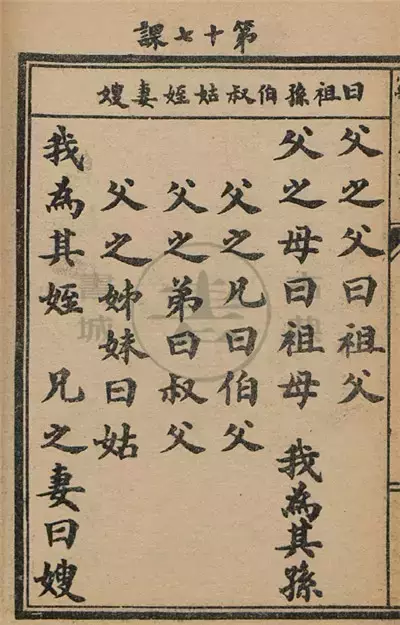 第十七課
曰祖孫伯叔姑姪妻嫂
父之父曰祖父
父之母曰祖母　我為其孫
父之兄曰伯父
父之弟曰叔父
父之姊妹曰姑
我為其姪　兄之妻曰嫂
書城